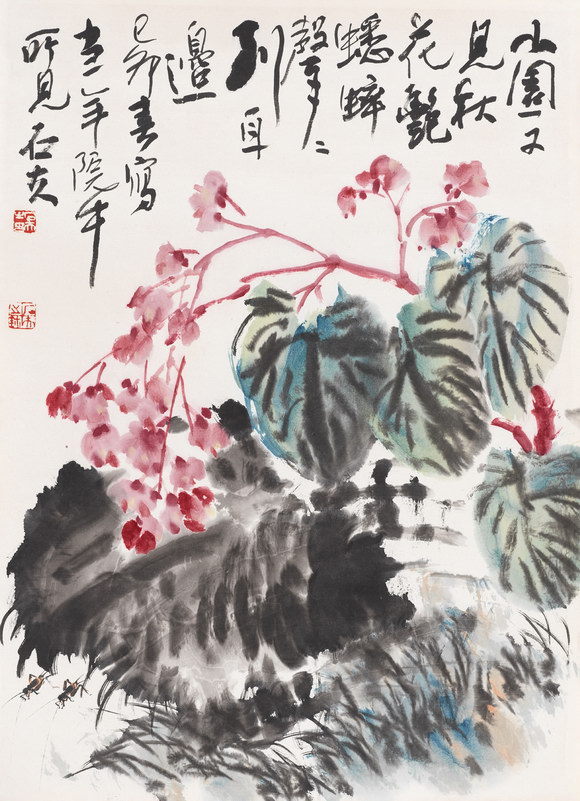 小園又
見秋
花艷
蟋蟀
聲〻
到耳
邊
己卯春寫
当年院中
所見石夫